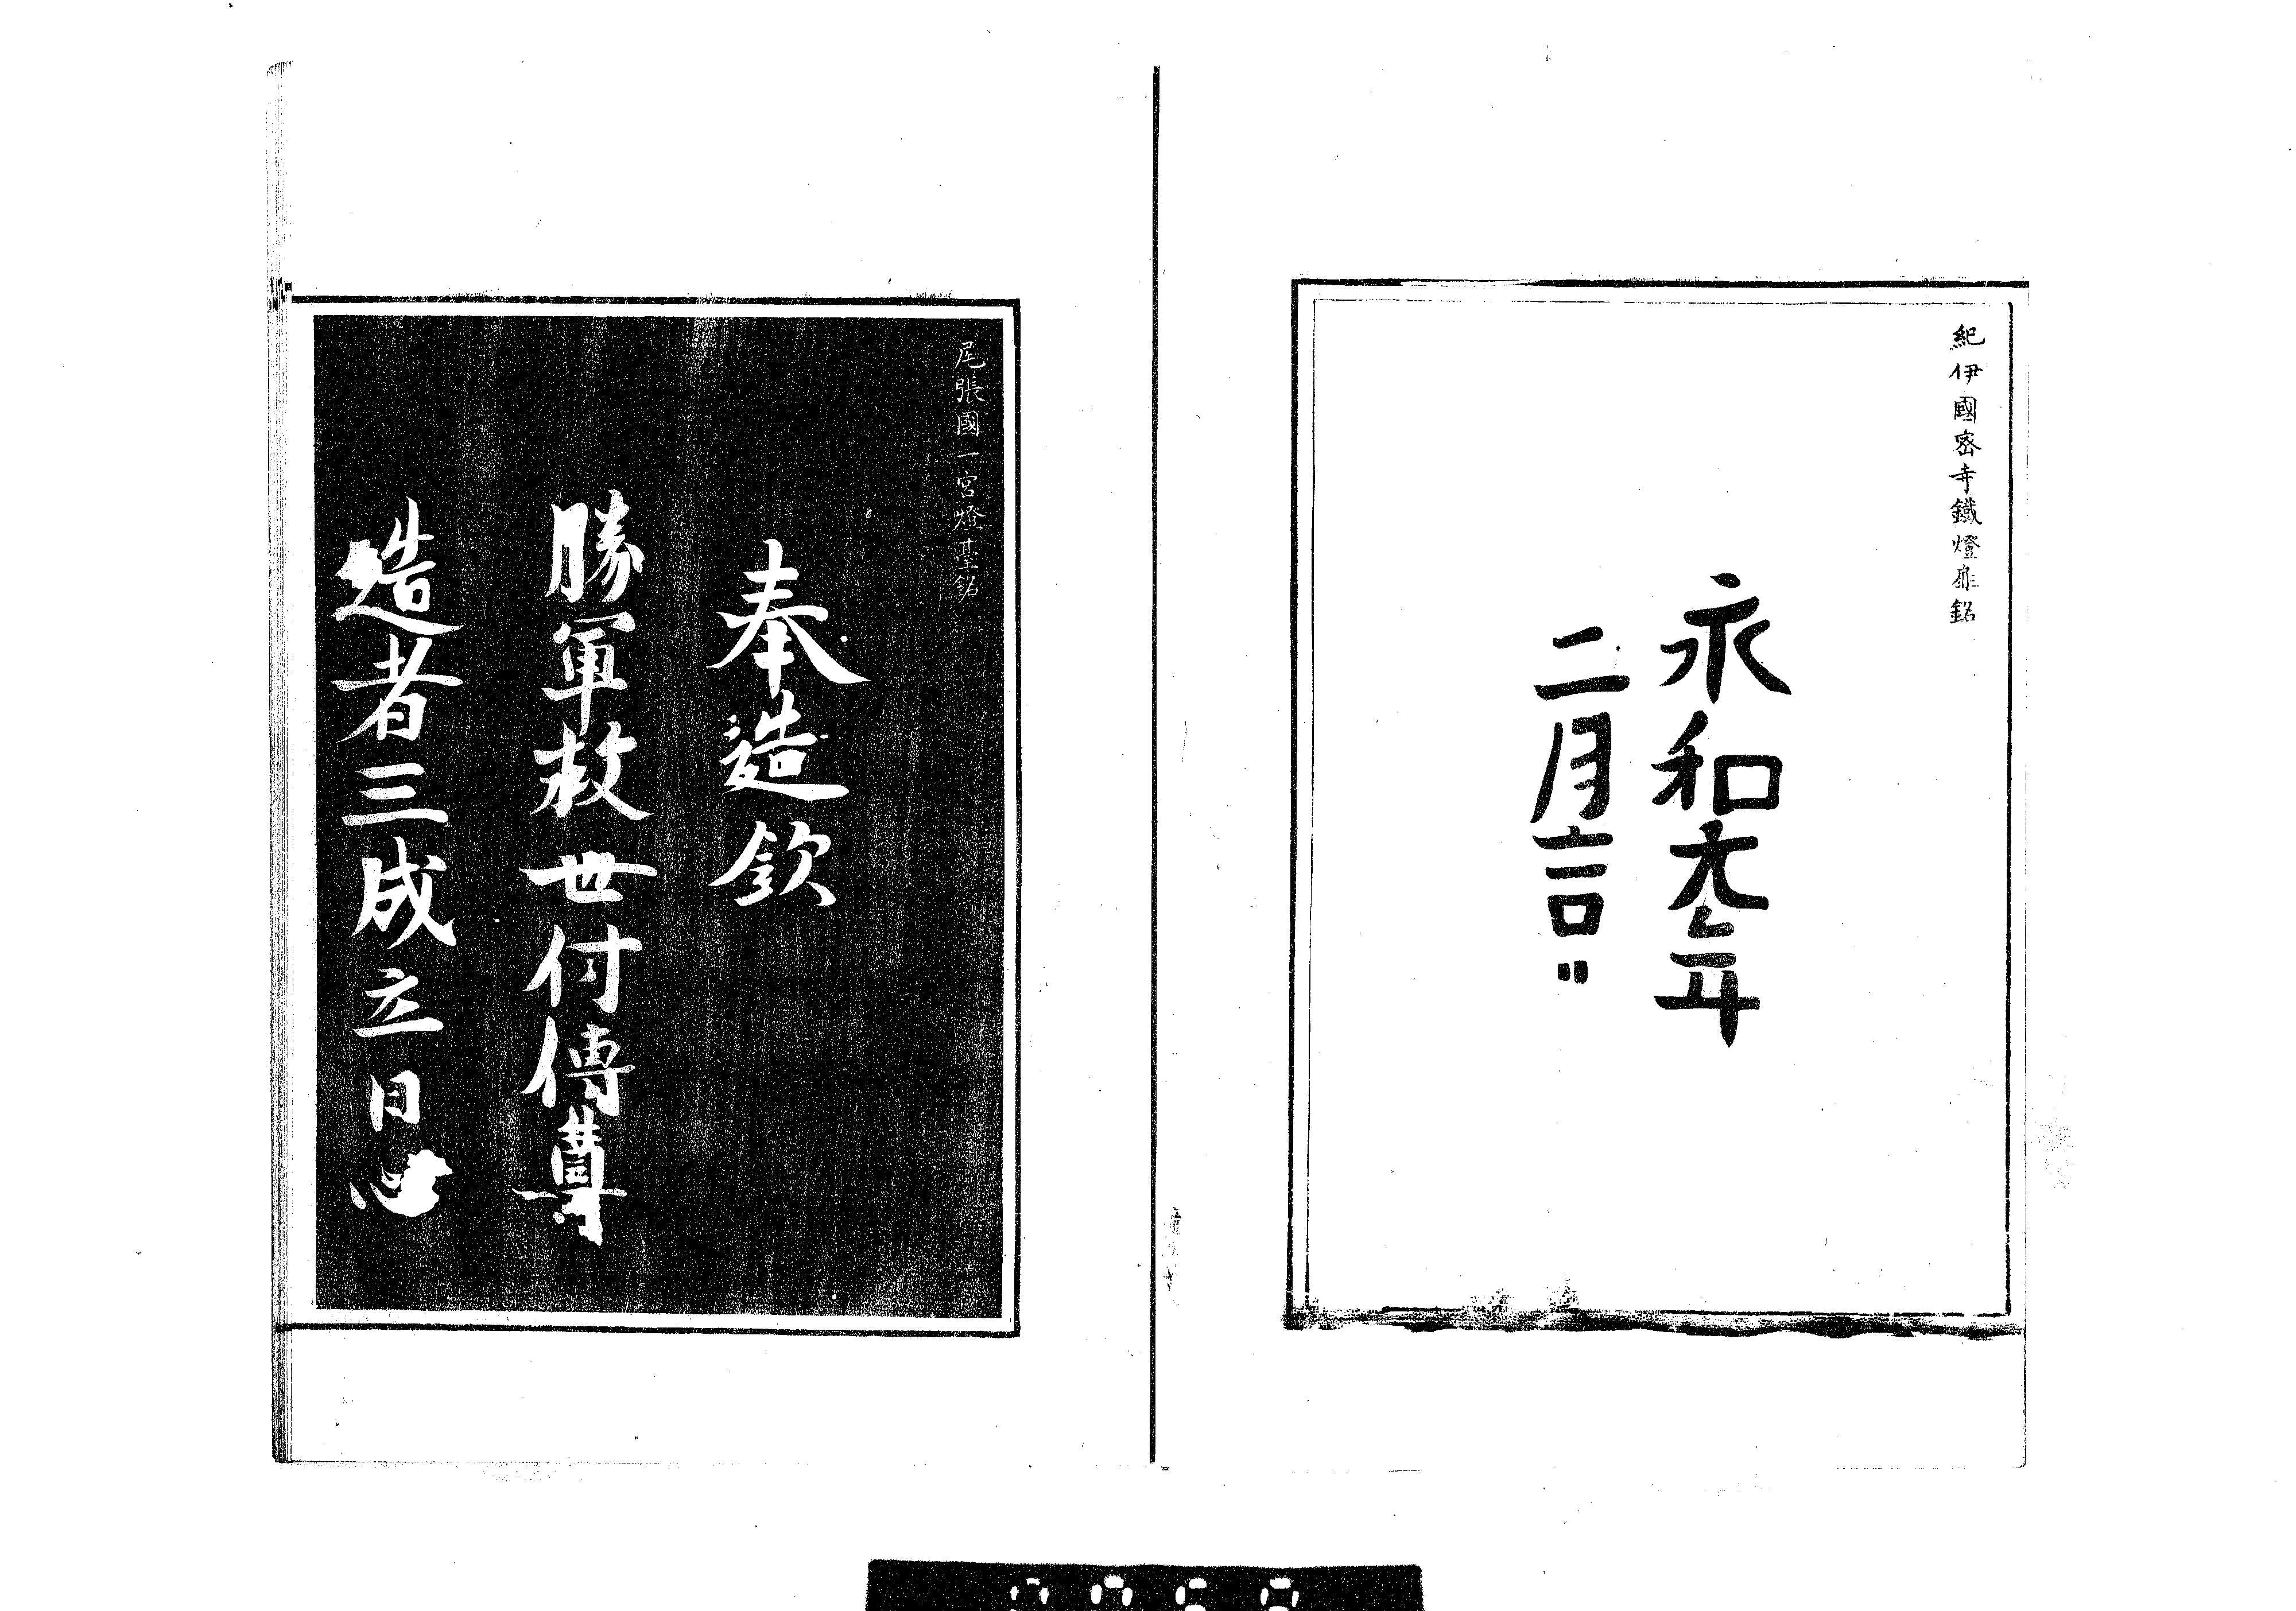 紀伊國密寺鐵燈扉銘
永和元年
二月吉日
尾張國一宮燈臺銘
奉造欽
勝軍救世付傳尊
造者三成立日